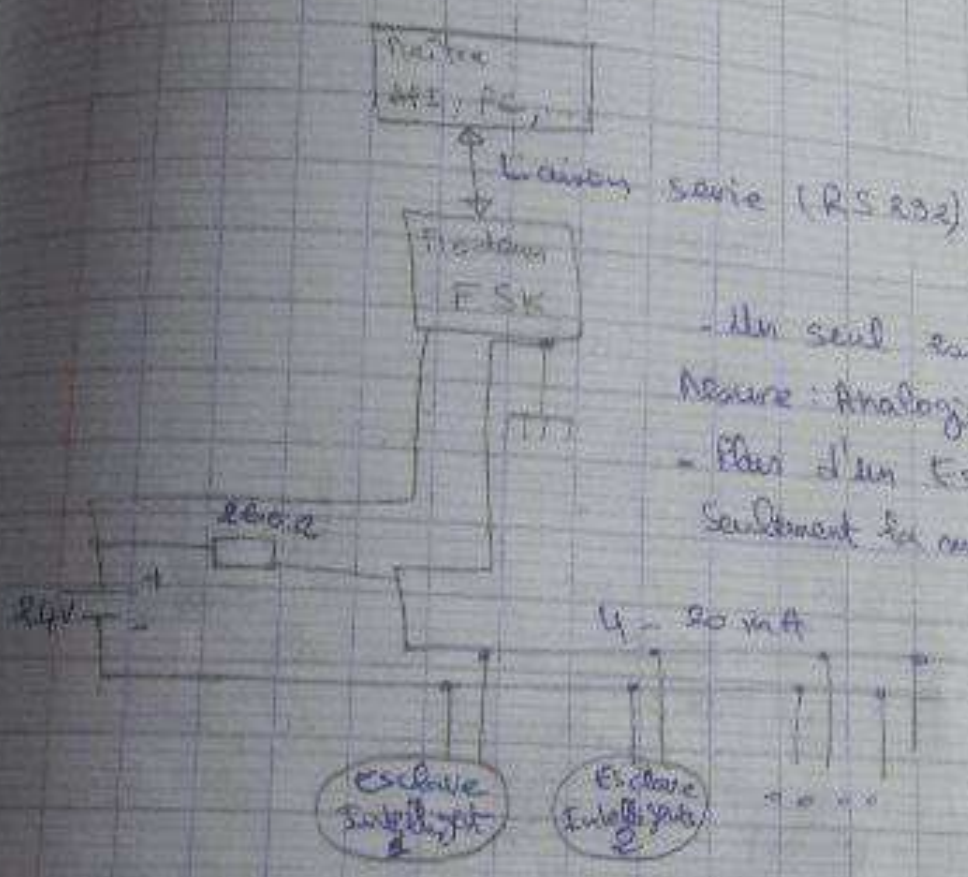 Maître :
API, PC, ...
Liaison serie (RS 232)
Modem
FSK
- Un seul
Mesure : Analogi
- Plus d'un Es
Seulement la
250 Ω
+
24V
-
4 - 20 mA
Esclave
Intelligent
1
Esclave
Intelligent
2